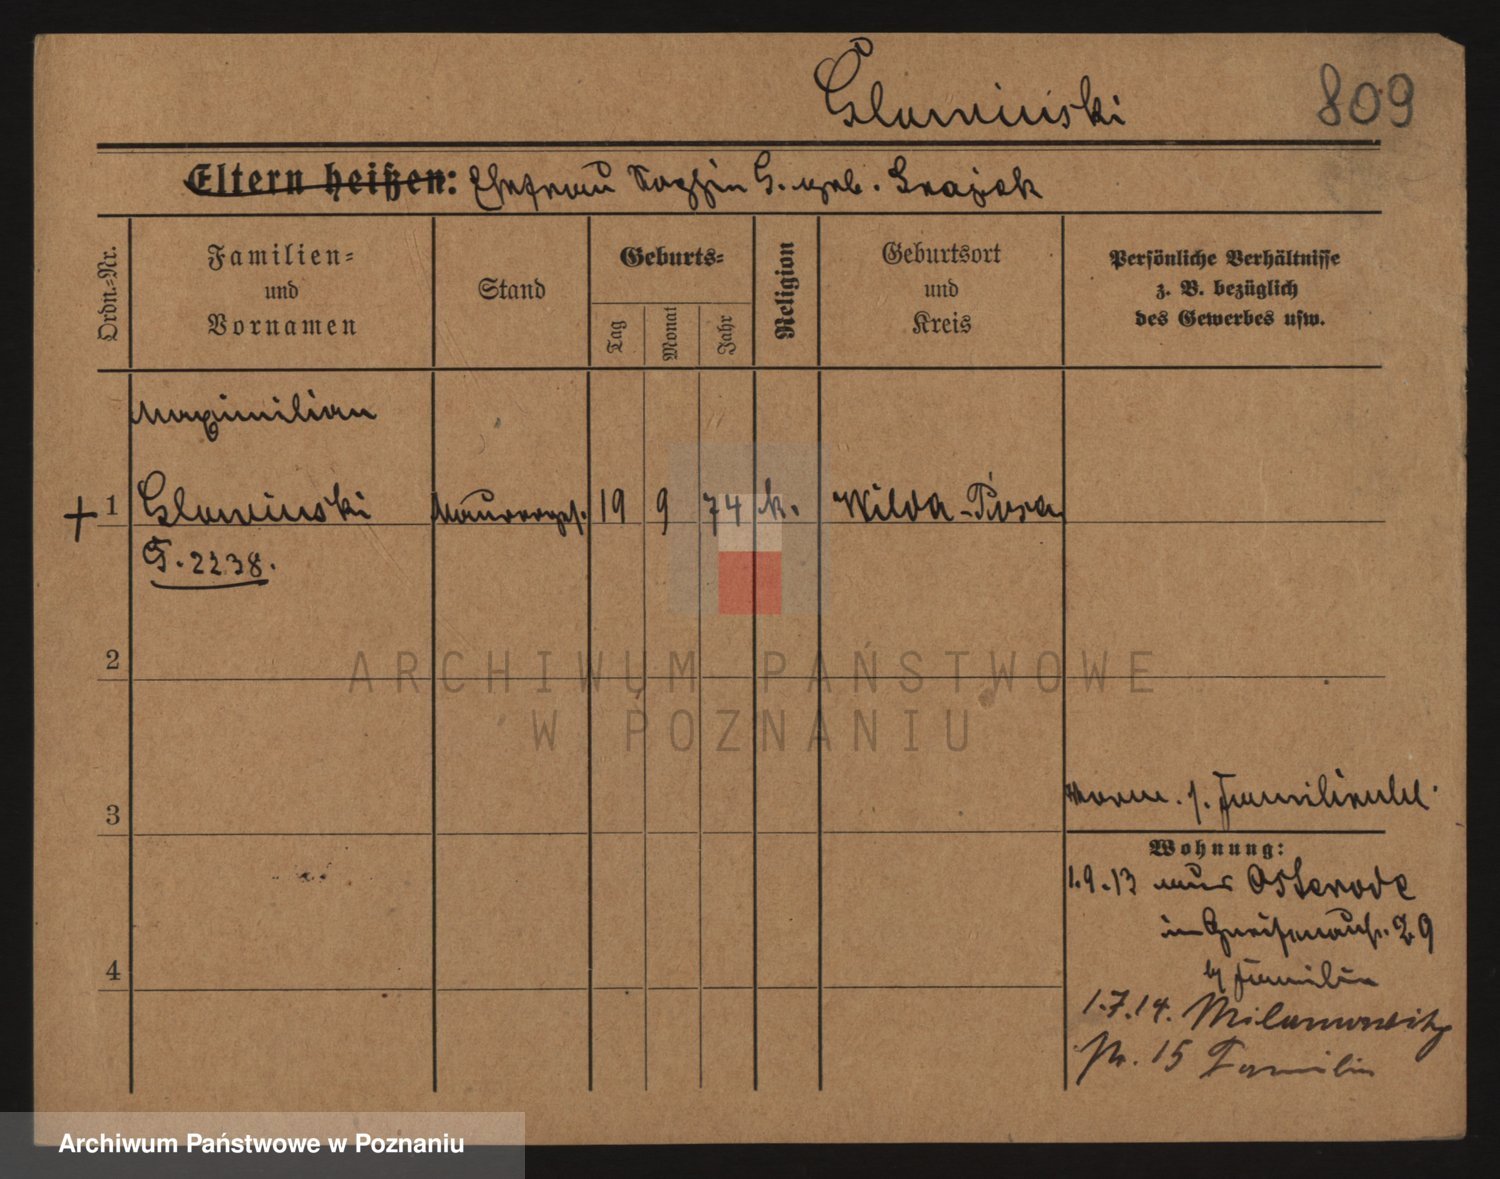 Glowinski
809
Eltern heißen: Ehefrau G. geb. Grajek
Ordn.-Nr.
Familien-
und
Vornamen
Stand
Geburts-
Tag
Monat
Jahr
Religion
Geburtsort
und
Kreis
Persönliche Verhältnisse
z. B. bezüglich
des Gewerbes usw.
Maximilian
+ 1 Glowinski Maurerges. 19 9 74 k. Wilda-Posen
T. 2238.
2
ARCHIWUM PAŃSTWOWE
W POZNANIU
3
Wohnung:
1.9.13 aus Osterode
in Gneisenaustr. 29
b/ Familie
4
1.7.14. Milanowitz
Str. 15 Familie
Archiwum Państwowe w Poznaniu